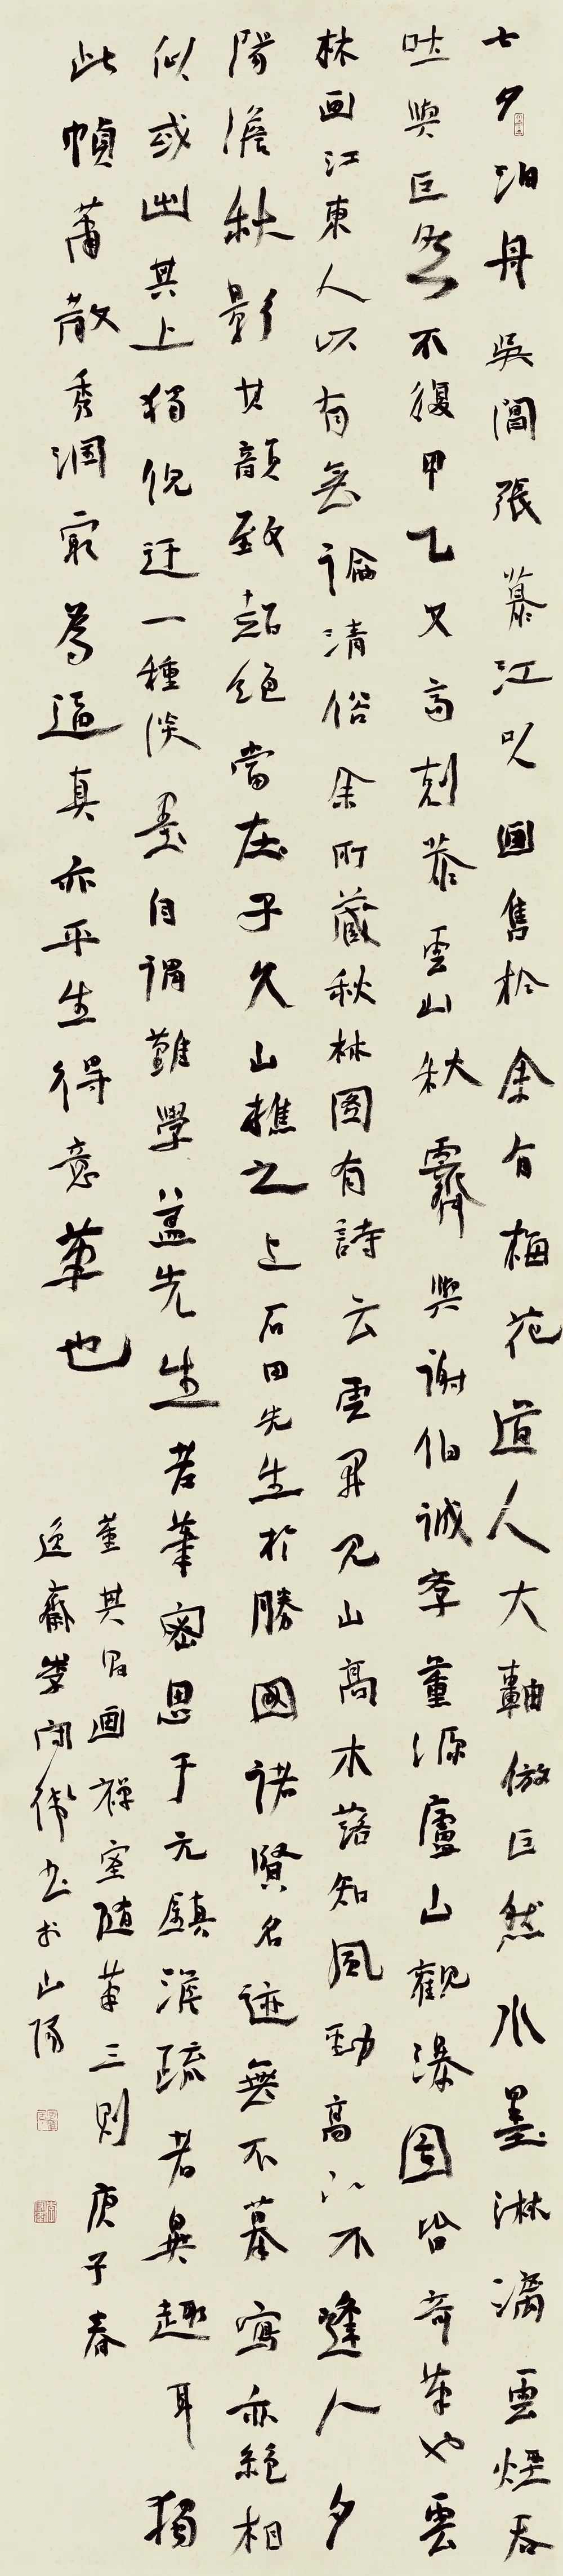 七夕泊舟吳閶張慕江以画售於余有梅花道人大軸倣巨然水墨淋漓雲煙吞
吐與巨然不復甲乙又高克恭雲山秋霽與謝伯誠學董源廬山觀瀑圖皆奇筆也雲
林画江東人以有無論清俗余所藏秋林图有詩云雲開見山高木落知風勁亭下不逢人夕
陽澹秋影其韻致超絕當在子久山樵之上石田先生於勝國諸賢名迹無不摹寫亦絕相
似或出其上獨倪迂一種淡墨自謂難學蓋先生老筆密思于元鎮澹疏者異趣耳獨
此幀蕭散秀潤最為逼真亦平生得意筆也
董其昌画禪室隨筆三則庚子春
逸齋李守衛書於山陽